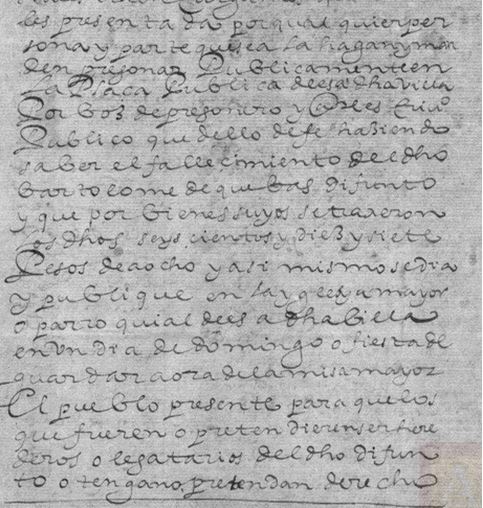 les presentada por qual quier per
sona y parte que sea la hagan y man
den prigonar Publicamente en
la Plaça Publica de esa dha villa
Por boz de pregonero y ante esCriuº
Publico que dello de fe haziendo
saber el falleCimiento del dho
bartolome de quebas difunto
y que por bienes suyos se traxeron
los dhos seys cientos y diez y siete
Pesos de a ocho y asi mismo se dia
y publique en la ygleçya mayor
o parroquial de esa dha billa
en Vn dia de domingo o fiesta de
guardar a ora de la misa mayor
El pueblo presente para que los
que fueren o pretendieren ser here
deros o legatarios del dho difun
to o tengan o pretendan derecho